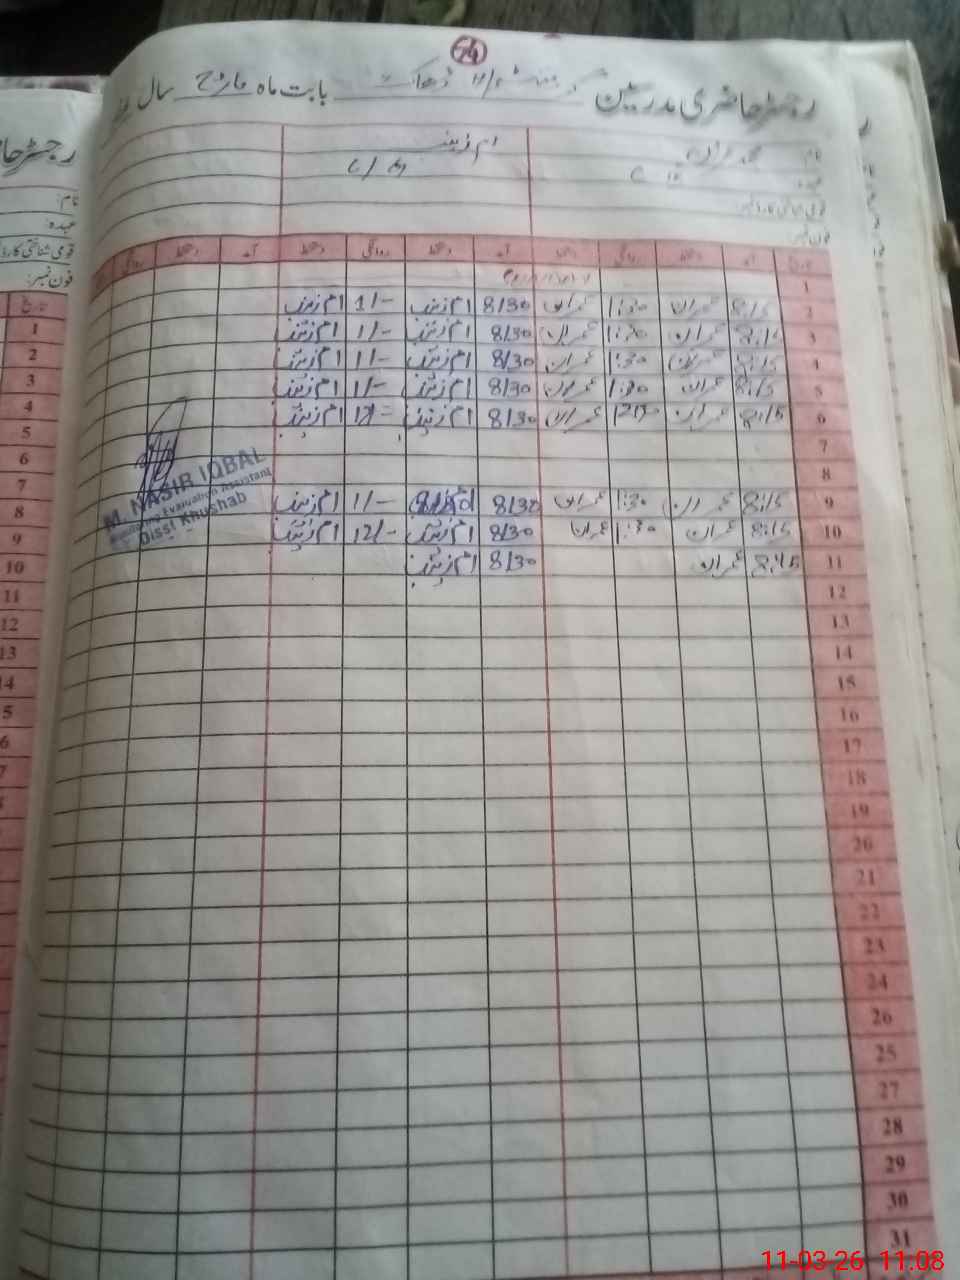 54
رجسٹر حاضری مدرسین بابت ماہ مارچ سال
نام ام زینب
عہدہ
قومی شناختی کارڈ نمبر
فون نمبر
تاریخ آمد دستخط روانگی دستخط آمد دستخط روانگی دستخط آمد دستخط روانگی
1
2 8:15 عمران 1:30 عمران 8/30 ام زینب 1/- ام زینب
3 8:15 عمران 1:30 عمران 8/30 ام زینب 1/- ام زینب
4 8:15 عمران 1:30 عمران 8/30 ام زینب 1/- ام زینب
5 8:15 عمران 1:30 عمران 8/30 ام زینب 1/- ام زینب
6 8:15 عمران عمران 8/30 ام زینب 12/- ام زینب
7
8
9 8:15 عمران 1:30 عمران 8/30 ام زینب 1/- ام زینب
10 8:15 عمران 1:30 عمران 8/30 ام زینب 12/- ام زینب
11 8:45 عمران 8/30 ام زینب
12
13
14
15
16
17
18
19
20
21
22
23
24
26
25
27
28
29
30
31
M. NASIR IQBAL
Monitoring Evaluation Assistant
Disst Khushab
رجسٹر حا
نام:
عہدہ:
قومی شناختی کارڈ
فون نمبر:
تاریخ
1
2
3
4
5
6
7
8
9
10
11
12
13
14
5
6
7
11-03-26 11:08